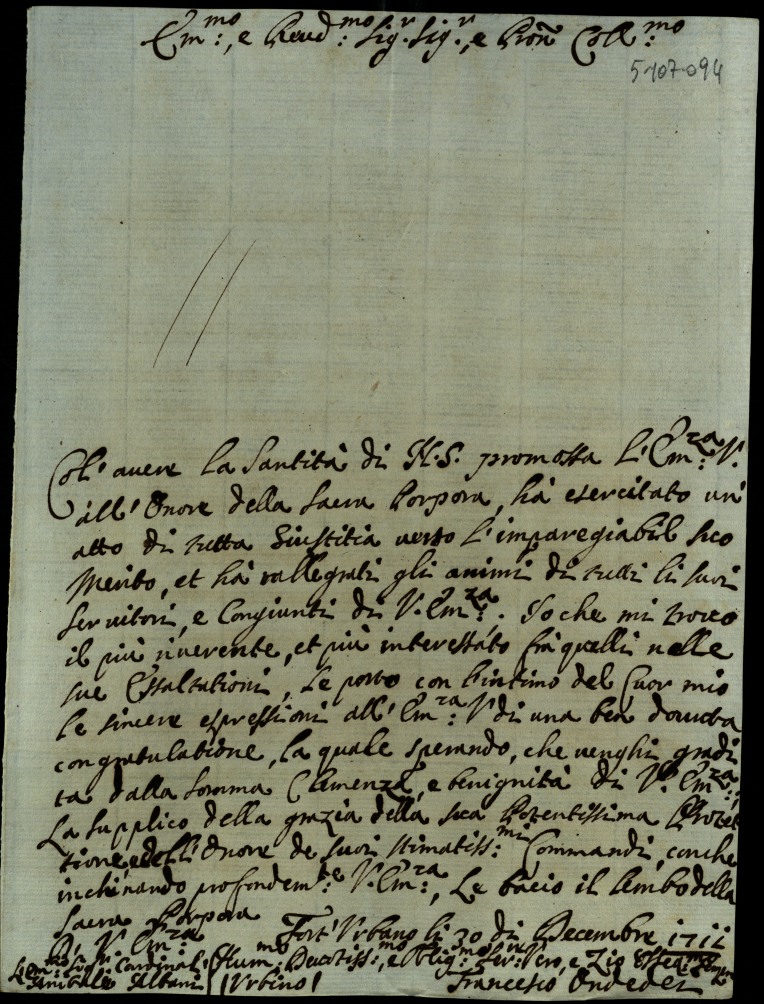 Em:mo, e Reud:mo Sig.r Sig.r, e Pron Coll:mo
5-107-094
Coll' auere la Santità di N.S. promossa L'Em:za V.
all' Onore della Sacra Porpora, hà esercitato un'
atto di tutta Giustitia uerso l'imparegiabil suo
Merito, et hà rallegrati gli animi di tutti li suoi
Seruitori, e Congiunti di V. Em:za. Io che mi trouo
il più riuerente, et più interessato frà quelli nelle
sue Essaltationi, Le porto con l'intimo del Cuor mio
le sincere espressioni all' Em:za V. di una ben douuta
congratulatione, la quale sperando, che uenghi gradi
ta dalla somma Clemenza, e benignità di V. Em:za,
La supplico della grazia della sua Potentissima Protet
tione, e dell' Onore de suoi stimatiss:mi Commandi, con che
inchinando profondem:te V. Em:za, Le bacio il lembo della
Sacra Porpora
Di V. Em:za Fort' Vrbano li 30 di Decembre 1711
Sig.r Cardinal Hum:mo Deuotiss:mo, e Oblig:mo Ser:re Vero, e Zio
Annibale Albani (Vrbino) Francesco Ondedei